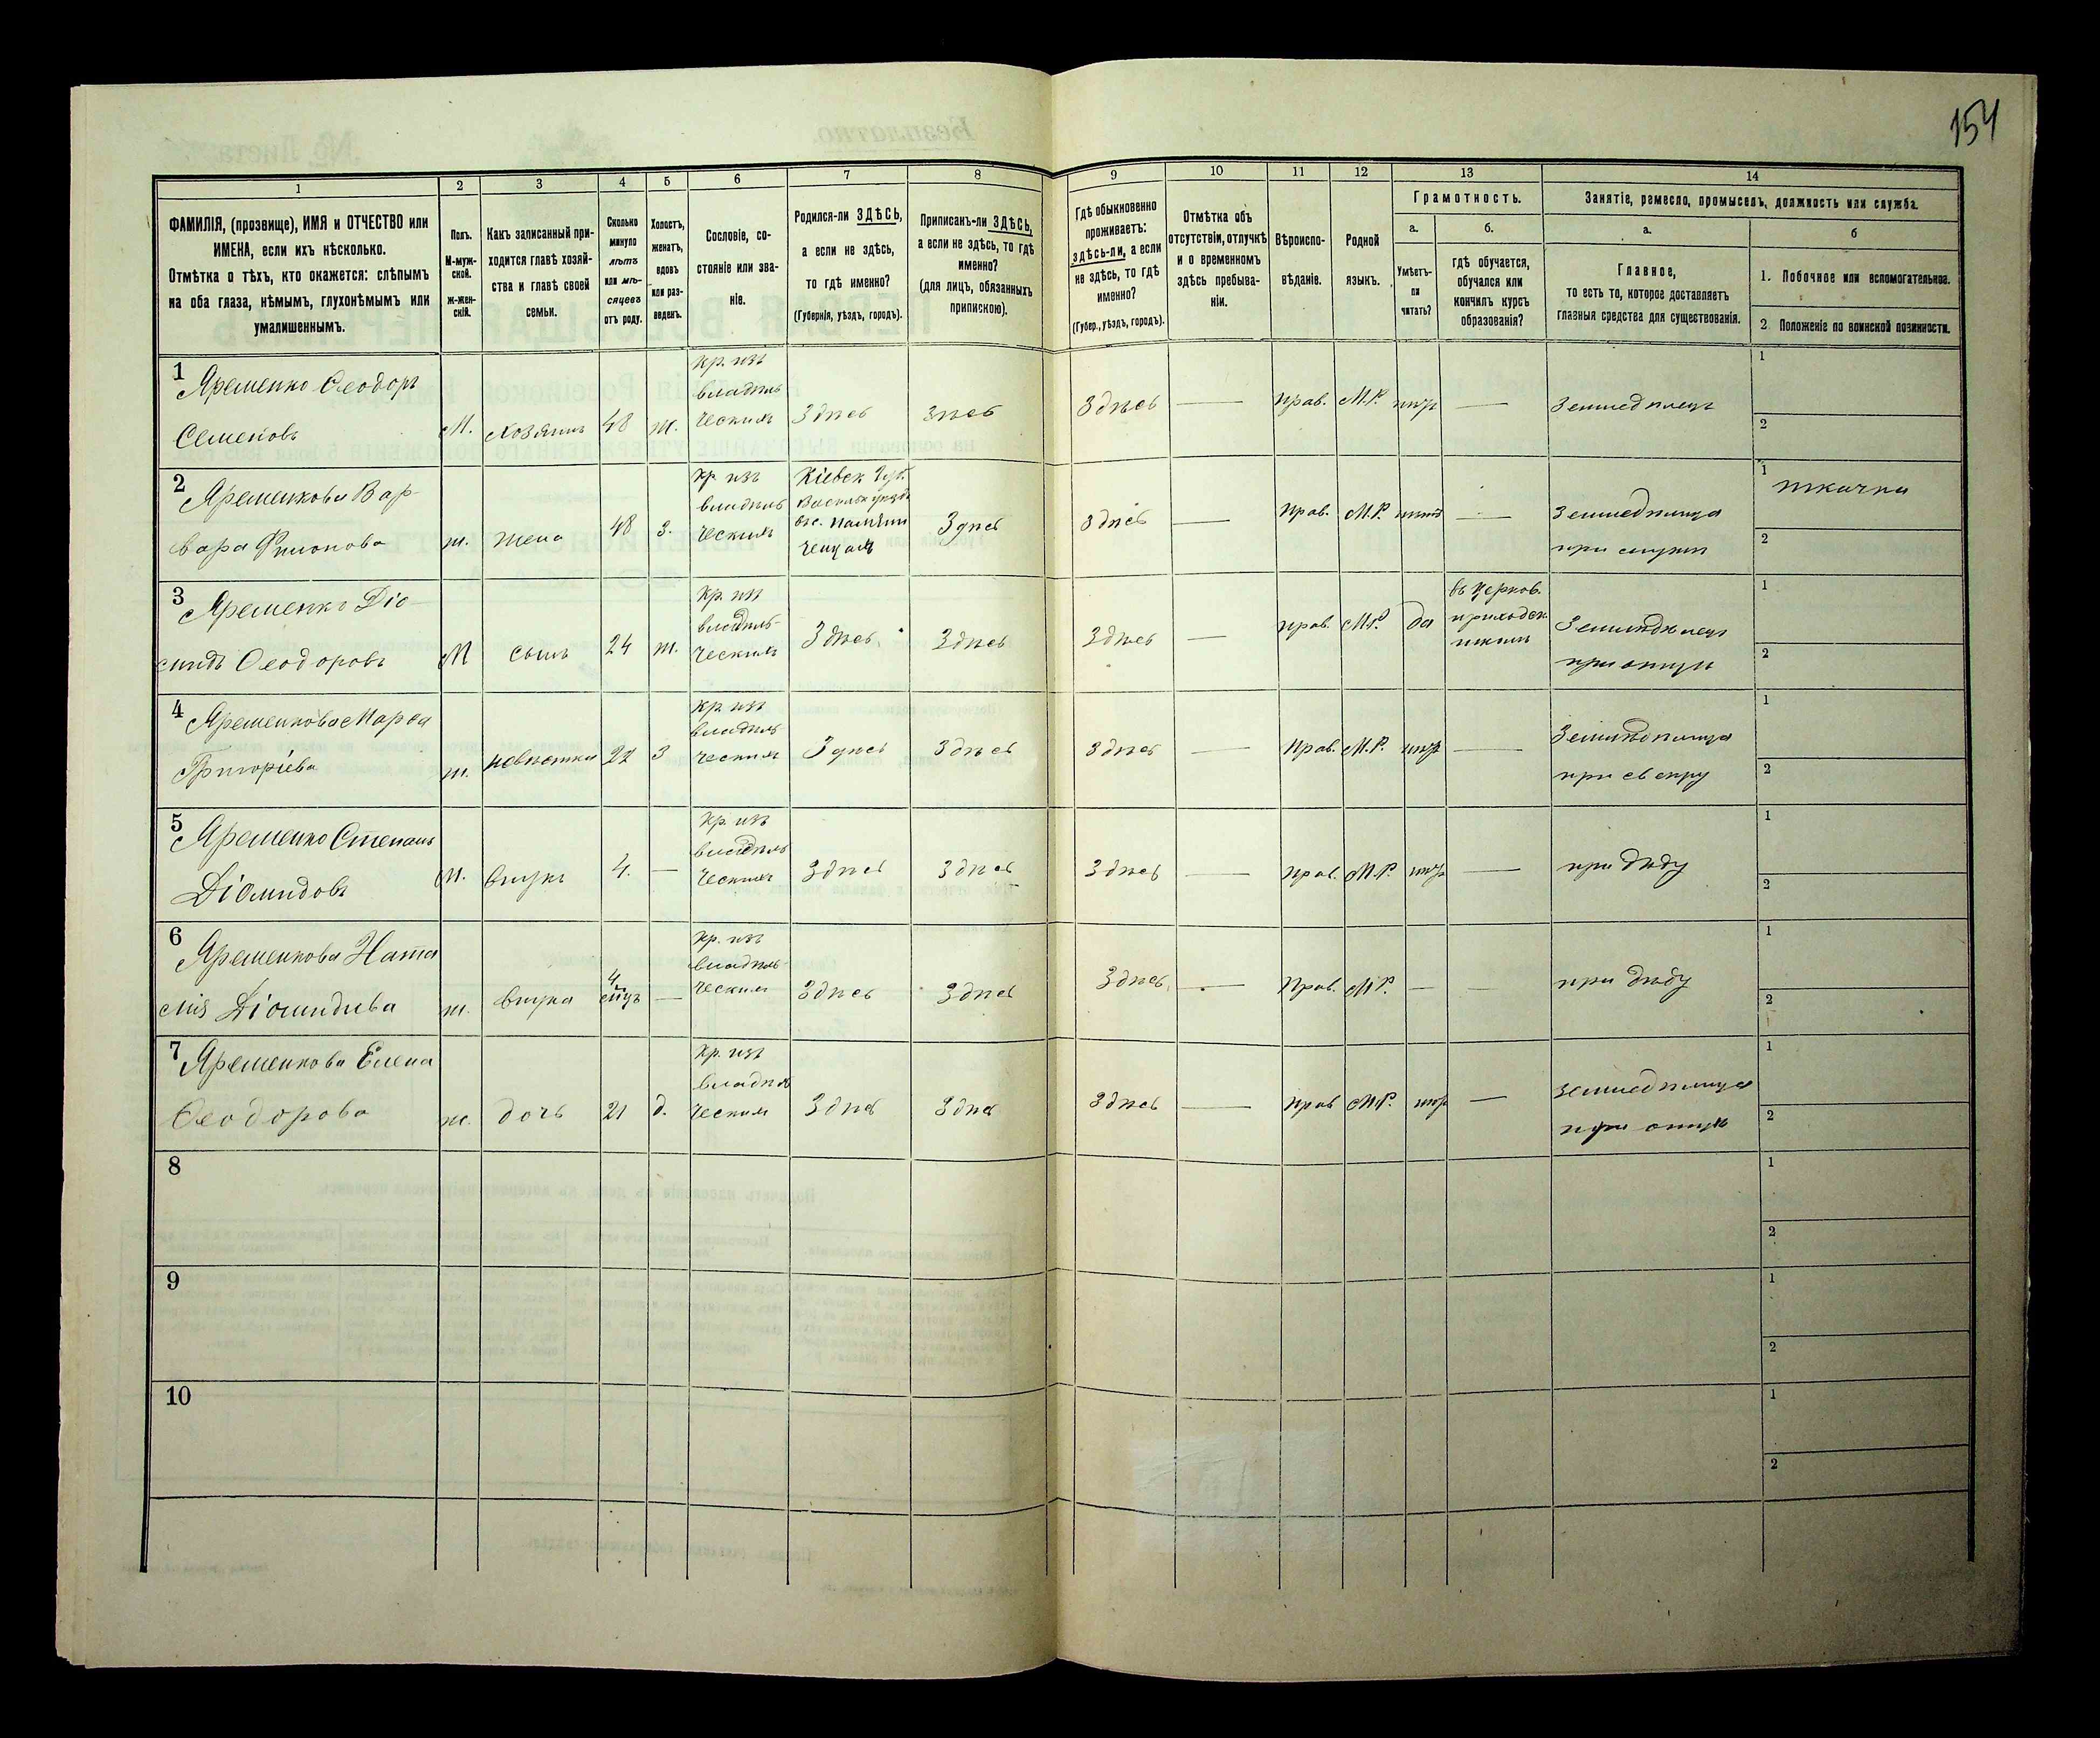 154
1
2
3
4
5
6
7
8
9
10
11
12
13
14
ФАМИЛІЯ, (прозвище), ИМЯ и ОТЧЕСТВО или
ИМЕНА, если ихъ нѣсколько.
Отмѣтка о тѣхъ, кто окажется: слѣпымъ
на оба глаза, нѣмымъ, глухонѣмымъ или
умалишеннымъ.
Полъ.
М-муж-
ской.
ж-жен-
скій.
Какъ записанный при-
ходится главѣ хозяй-
ства и главѣ своей
семьи.
Сколько
минуло
лѣтъ
или мѣ-
сяцевъ
отъ роду.
Холостъ,
женатъ,
вдовъ
или раз-
веденъ.
Сословіе, со-
стояніе или зва-
ніе.
Родился-ли ЗДѢСЬ,
а если не здѣсь,
то гдѣ именно?
(Губернія, уѣздъ, городъ).
Приписанъ-ли ЗДѢСЬ,
а если не здѣсь, то гдѣ
именно?
(для лицъ, обязанныхъ
припискою).
Гдѣ обыкновенно
проживаетъ:
здѣсь-ли, а если
не здѣсь, то гдѣ
именно?
(Губер., уѣздъ, городъ).
Отмѣтка объ
отсутствіи, отлучкѣ
и о временномъ
здѣсь пребыва-
ніи.
Вѣроиспо-
вѣданіе.
Родной
языкъ.
Грамотность.
а.
Умѣетъ-
ли
читать?
б.
гдѣ обучается,
обучался или
кончилъ курсъ
образованія?
Занятіе, ремесло, промыселъ, должность или служба.
а.
Главное,
то есть то, которое доставляетъ
главныя средства для существованія.
б
1. Побочное или вспомогательное.
2 Положеніе по воинской повинности.
1 Яременко Ѳеодоръ
Семеновъ
М. хозяинъ 48 ж.
кр. изъ
владѣль
ческихъ
Здѣсь
Здѣсь
Здѣсь — прав. М.Р. —
Земледѣлецъ
1
2
2 Яременкова Вар-
вара
ж. жена 48 з.
кр. изъ
владѣль
ческихъ
Кіевск Губ.
Здѣсь
Здѣсь — прав. М.Р. —
Земледѣлица
1 ткачка
2
3 Яременко Діо-
мидъ Ѳеодоровъ
М сынъ 24 ж.
кр. изъ
владѣль-
ческихъ
Здѣсь
Здѣсь
Здѣсь — прав. М.Р. да
въ церков.
приходск.
Земледѣлецъ
при отцѣ
1
2
4 Яременкова Марѳа
Григоріева
ж. невѣстка 22 з
кр. изъ
владѣль
ческихъ
Здѣсь
Здѣсь
Здѣсь — прав. М.Р. —
Земледѣлица
при свекру
1
2
5 Яременко Степанъ
Діомидовъ
М. внукъ 4. —
кр. изъ
владѣль
ческихъ
Здѣсь
Здѣсь
Здѣсь — прав. М.Р. —
при дѣду
1
2
6 Яременкова Ната
лія Діомидова
ж. внука 4 —
кр. изъ
владѣль-
ческихъ
Здѣсь
Здѣсь
Здѣсь — прав. М.Р. — —
при дѣду
1
2
7 Яременкова Елена
Ѳеодорова
ж. дочь 21 д.
кр. изъ
владѣль
ческихъ
Здѣсь
Здѣсь
Здѣсь — прав М.Р. —
Земледѣлица
при отцѣ
1
2
8
1
2
9
1
2
10
1
2